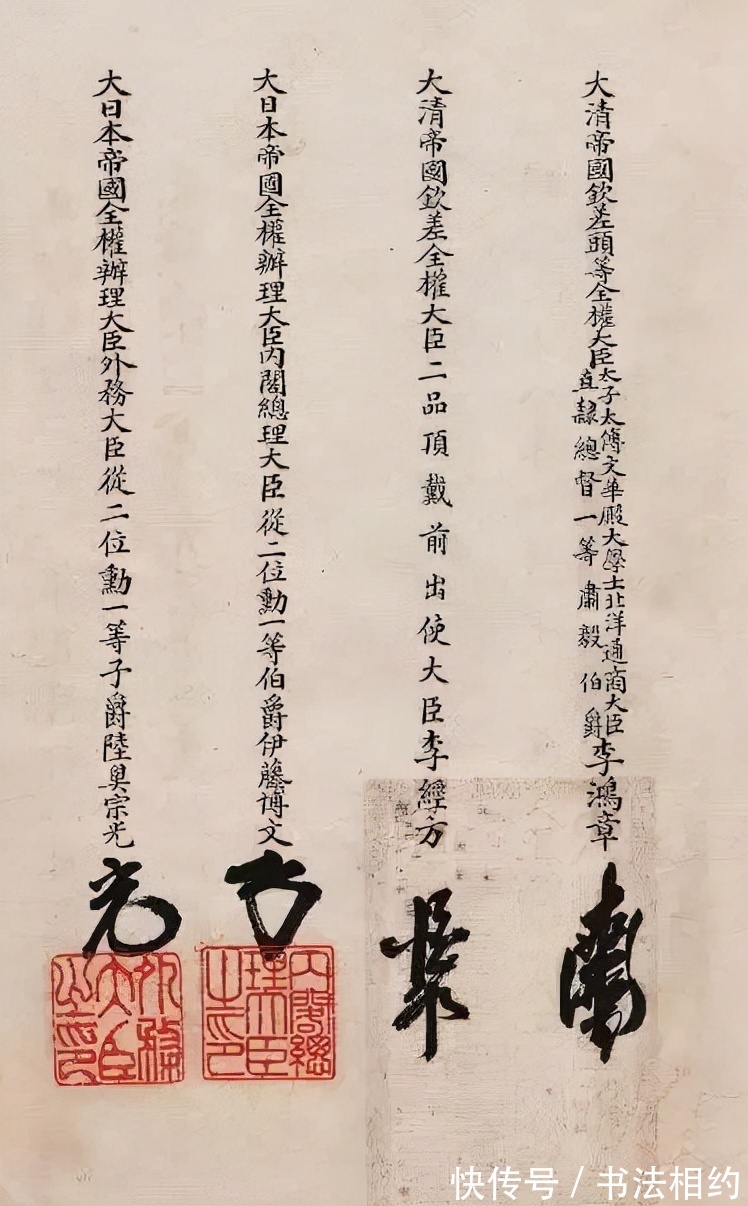 大清帝國欽差頭等全權大臣太子太傅文華殿大學士北洋通商大臣
直隸總督一等肅毅伯爵
李鴻章
大清帝國欽差全權大臣二品頂戴前出使大臣李經方
大日本帝國全權辦理大臣內閣總理大臣從二位勳一等伯爵伊藤博文
大日本帝國全權辦理大臣外務大臣從二位勳一等子爵陸奧宗光
內閣總
理大臣
之印
外務
大臣
之印
快传号 / 书法相约